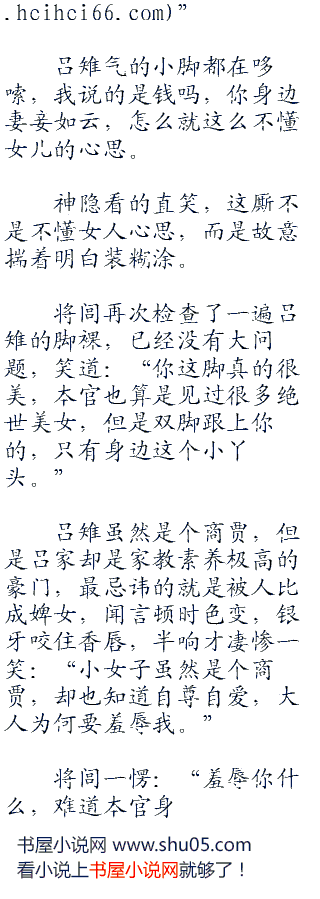 .hcihci66.com)”
吕雉气的小脚都在哆
嗦，我说的是钱吗，你身边
妻妾如云，怎么就这么不懂
女儿的心思。
神隐看的直笑，这厮不
是不懂女人心思，而是故意
揣着明白装糊涂。
将闾再次检查了一遍吕
雉的脚裸，已经没有大问
题，笑道：“你这脚真的很
美，本官也算是见过很多绝
世美女，但是双脚跟上你
的，只有身边这个小丫
头。”
吕雉虽然是个商贾，但
是吕家却是家教素养极高的
豪门，最忌讳的就是被人比
成婢女，闻言顿时色变，银
牙咬住香唇，半响才凄惨一
笑：“小女子虽然是个商
贾，却也知道自尊自爱，大
人为何要羞辱我。”
将闾一愣：“羞辱你什
么，难道本官身
书屋小说网 www.shu05.com
看小说上书屋小说网就够了！